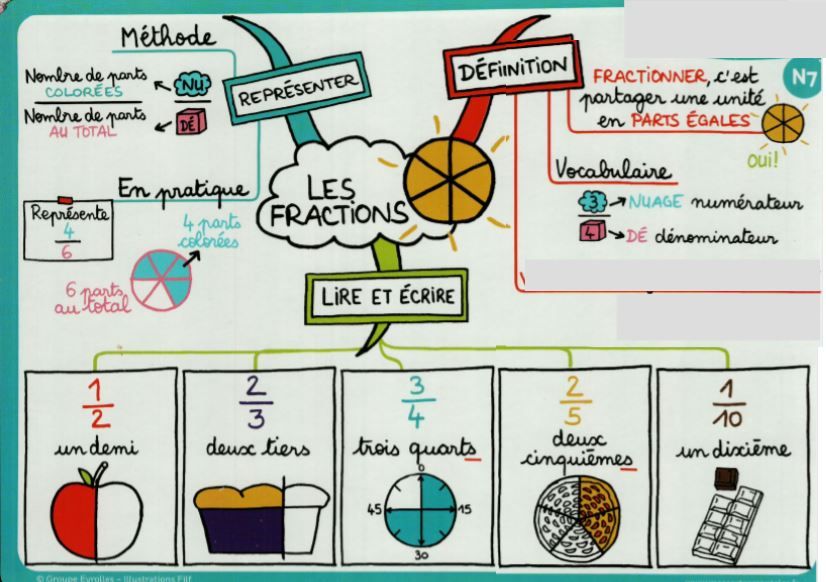 Méthode
Nombre de parts
COLORÉES
Nu
Nombre de parts
AU TOTAL
DÉ
REPRÉSENTER
En pratique
Représente
4
6
4 parts
colorées
6 parts
au total
LES
FRACTIONS
DÉFIINITION
FRACTIONNER, c'est
partager une unité
en PARTS ÉGALES
oui!
N7
Vocabulaire
3 NUAGE numérateur
4 DÉ dénominateur
LIRE ET ÉCRIRE
1
2
un demi
2
3
deux tiers
3
4
trois quarts
0
45
15
30
2
5
deux
cinquièmes
1
10
un dixième
© Groupe Eyrolles – Illustrations Filf